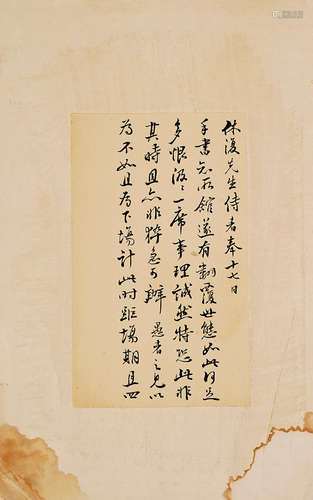 休復先生侍者奉十七日
手書知所館遂有翻覆世態如此何足
多恨派〻一席事理誠然特恐此非
其時且亦非猝急可辦愚者之見以
為不如且為下場計此時距場期且四